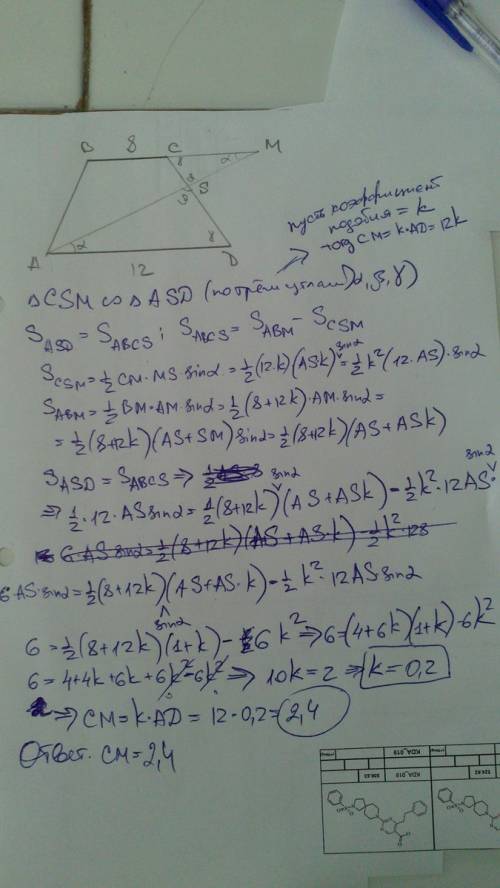 B 8 C M
γ α
β S
A α γ D
12
пусть коэффициент
подобия = k
тогда CM = k·AD = 12k
△CSM ∞ △ASD (по трём углам α, β, γ)
S_ASD = S_ABCS; S_ABCS = S_ABM − S_CSM
S_CSM = 1/2 CM·MS·sinα = 1/2(12·k)(ASk) sinα = 1/2 k²(12·AS)·sinα
S_ABM = 1/2 BM·AM·sinα = 1/2(8+12k)·AM·sinα =
= 1/2(8+12k)(AS+SM) sinα = 1/2(8+12k)(AS+ASk) sinα
S_ASD = S_ABCS ⇒
⇒ 1/2·12·AS sinα = 1/2(8+12k) sinα (AS+ASk) − 1/2k²·12AS·
6·AS sinα = 1/2(8+12k)(AS+AS·k) − 1/2k²·128
6 AS·sinα = 1/2(8+12k) sinα (AS+AS·k) − 1/2k²·12AS sinα
6 = 1/2(8+12k)(1+k) − 6k² ⇒ 6=(4+6k)(1+k)−6k²
6 = 4+4k+6k+6k²−6k² ⇒ 10k=2 ⇒ k=0,2
⇒ CM = k·AD = 12·0,2 = 2,4
Ответ. CM = 2,4
KDA_019
KDA_019